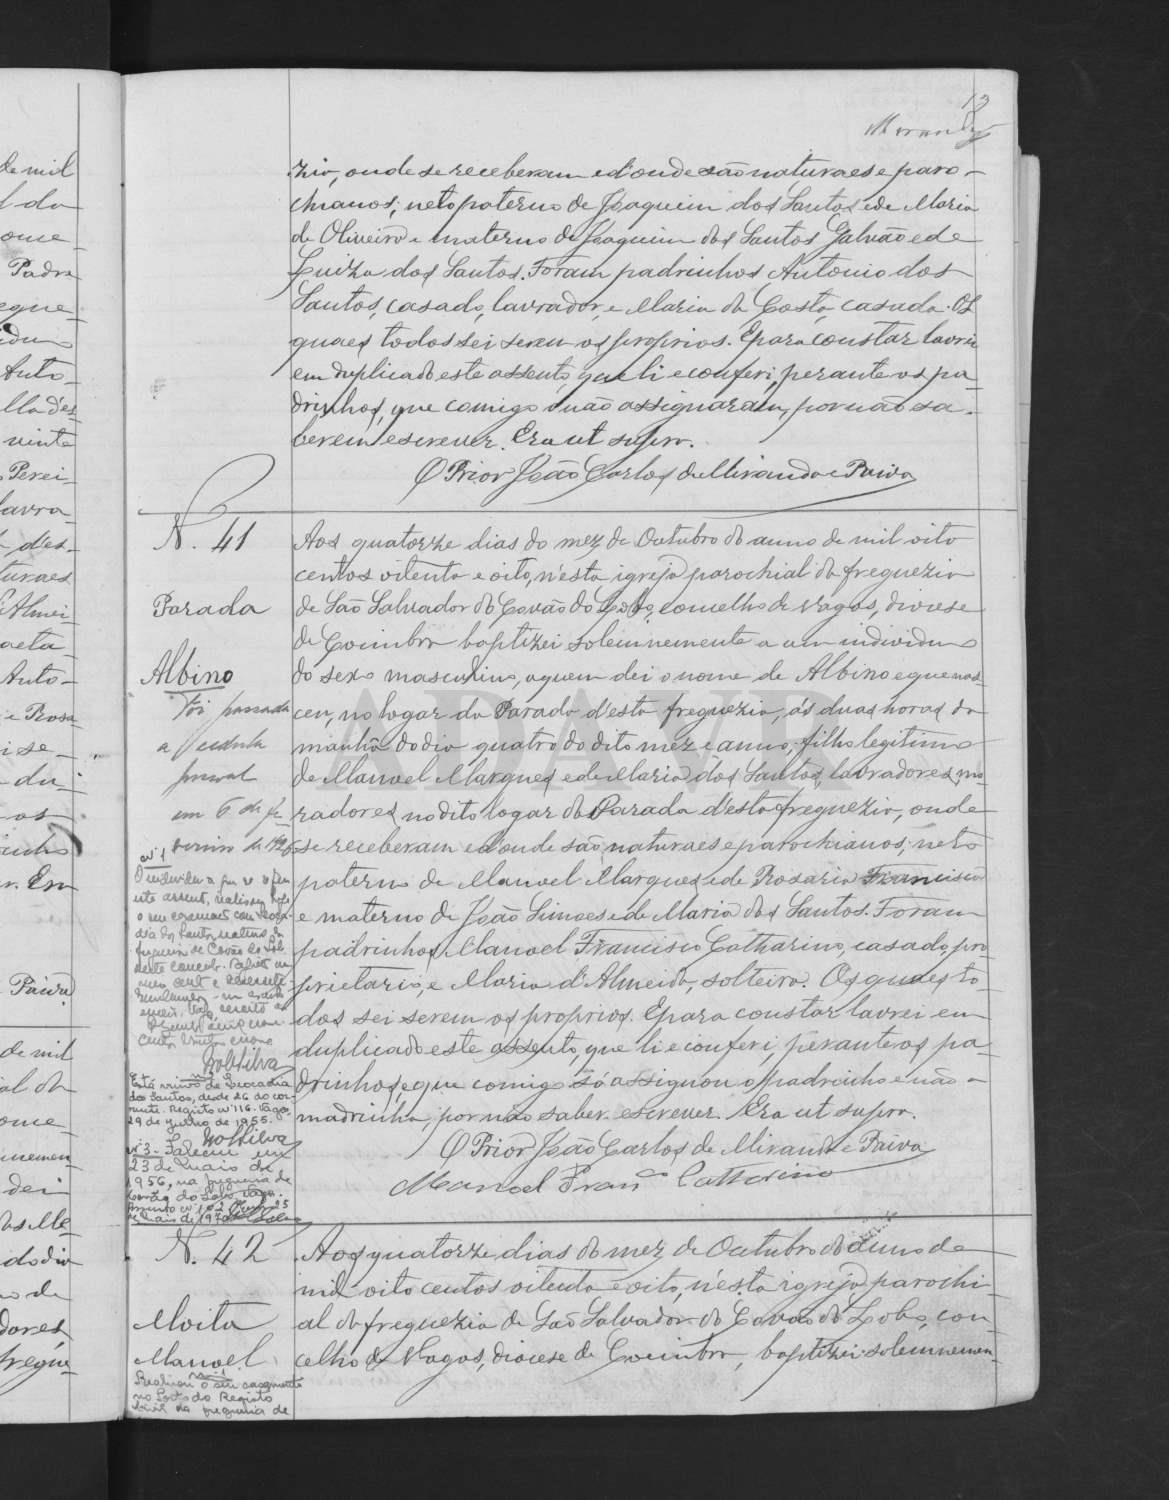 13
Miranda
zia, onde se receberam e d'onde são naturaes e paro-
chianos; neto paterno de Joaquim dos Santos e de Maria
de Oliveira e materno de Joaquim dos Santos Galvão e de
Luiza dos Santos. Foram padrinhos Antonio dos
Santos, casado, lavrador, e Maria da Costa, casada. Os
quaes todos sei serem os proprios. E para constar lavrei
em duplicado este assento, que li e conferi, perante os pa-
drinhos, que comigo não assignaram, por não sa-
berem escrever. Era ut supra.
O Prior João Carlos de Miranda e Paiva
N. 41
Parada
Albino
Foi passada
a cedula
pessoal
em 6 de fe-
vereiro de
Nº 1
Aos quatorze dias do mez de Outubro do anno de mil oito
centos oitenta e oito, n'esta igreja parochial da freguezia
de São Salvador do Covão do Lobo, concelho de Vagos, diocese
de Coimbra baptizei solemnemente a um individuo
do sexo masculino, a quem dei o nome de Albino e que nas-
ceu, no logar da Parada d'esta freguezia, ás duas horas da
manhã do dia quatro do dito mez e anno; filho legitimo
de Manoel Marques e de Maria dos Santos, lavradores, mo-
radores no dito logar da Parada d'esta freguezia, onde
se receberam e d'onde são naturaes e parochianos; neto
paterno de Manoel Marques e de Rosaria Francisca
e materno de João Simoes e de Maria dos Santos. Foram
padrinhos Manoel Francisco Catharino, casado, pro-
prietario, e Maria d'Almeida, solteira. Os quaes to-
dos sei serem os proprios. E para constar lavrei em
duplicado este assento, que li e conferi, perante os pa-
drinhos, e que comigo só assignou o padrinho e não a
madrinha, por não saber escrever. Era ut supra.
O Prior João Carlos de Miranda e Paiva
Manoel Franco Catharino
O individuo a que se refere
este assento, realisou hoje
o seu casamento com Leoca-
dia dos Santos, natural da
freguesia de Covão do Lobo
deste concelho.
Nº 2
Está viuvo de Leocadia
dos Santos, desde 26 do cor-
rente. Registo nº 116. Vagos,
29 de Junho de 1955.
Nº 3 - Faleceu em
23 de Maio de
1956, na freguesia de
Covão do Lobo, Vagos.
N. 42
Moita
Manoel
Nº 1
Realizou o seu casamento
no Posto do Registo
Civil da freguesia de
Aos quatorze dias do mez de Outubro do anno de
mil oito centos oitenta e oito, n'esta igreja parochi-
al da freguezia de São Salvador do Covão do Lobo, con-
celho de Vagos, diocese de Coimbra, baptizei solemnemen-
ADAVR